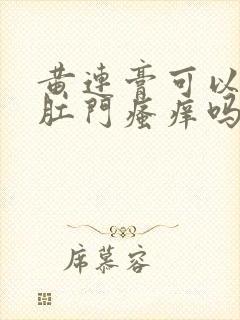 黄连膏可以
肛门瘙痒吗
席慕容